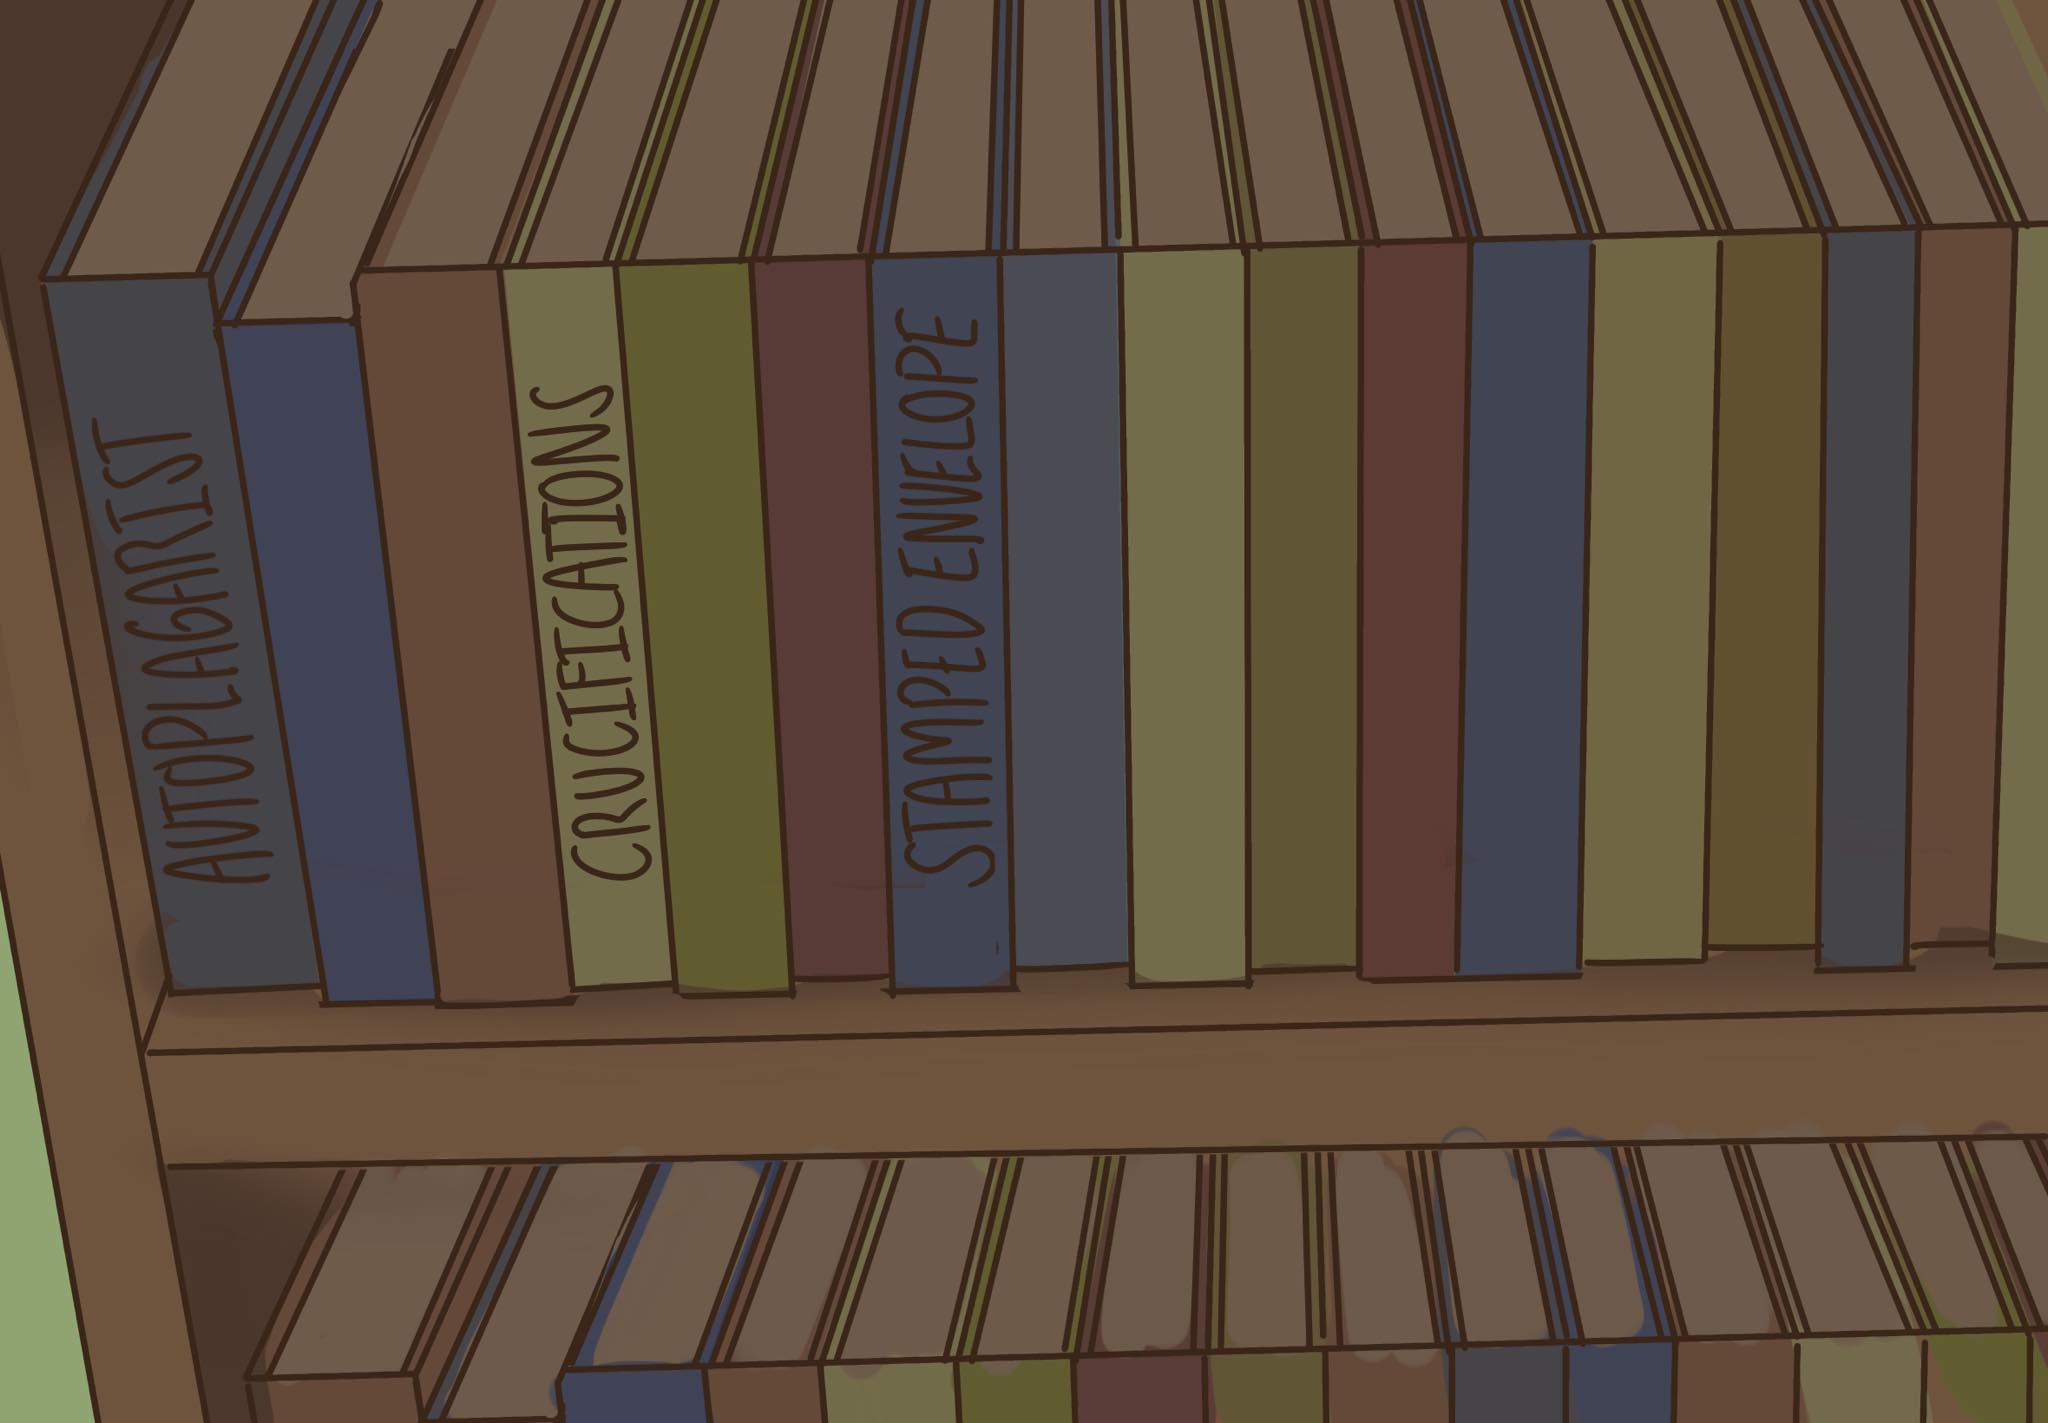 AUTOPLAGARIST
CRUCIFICATIONS
STAMPED ENVELOPE